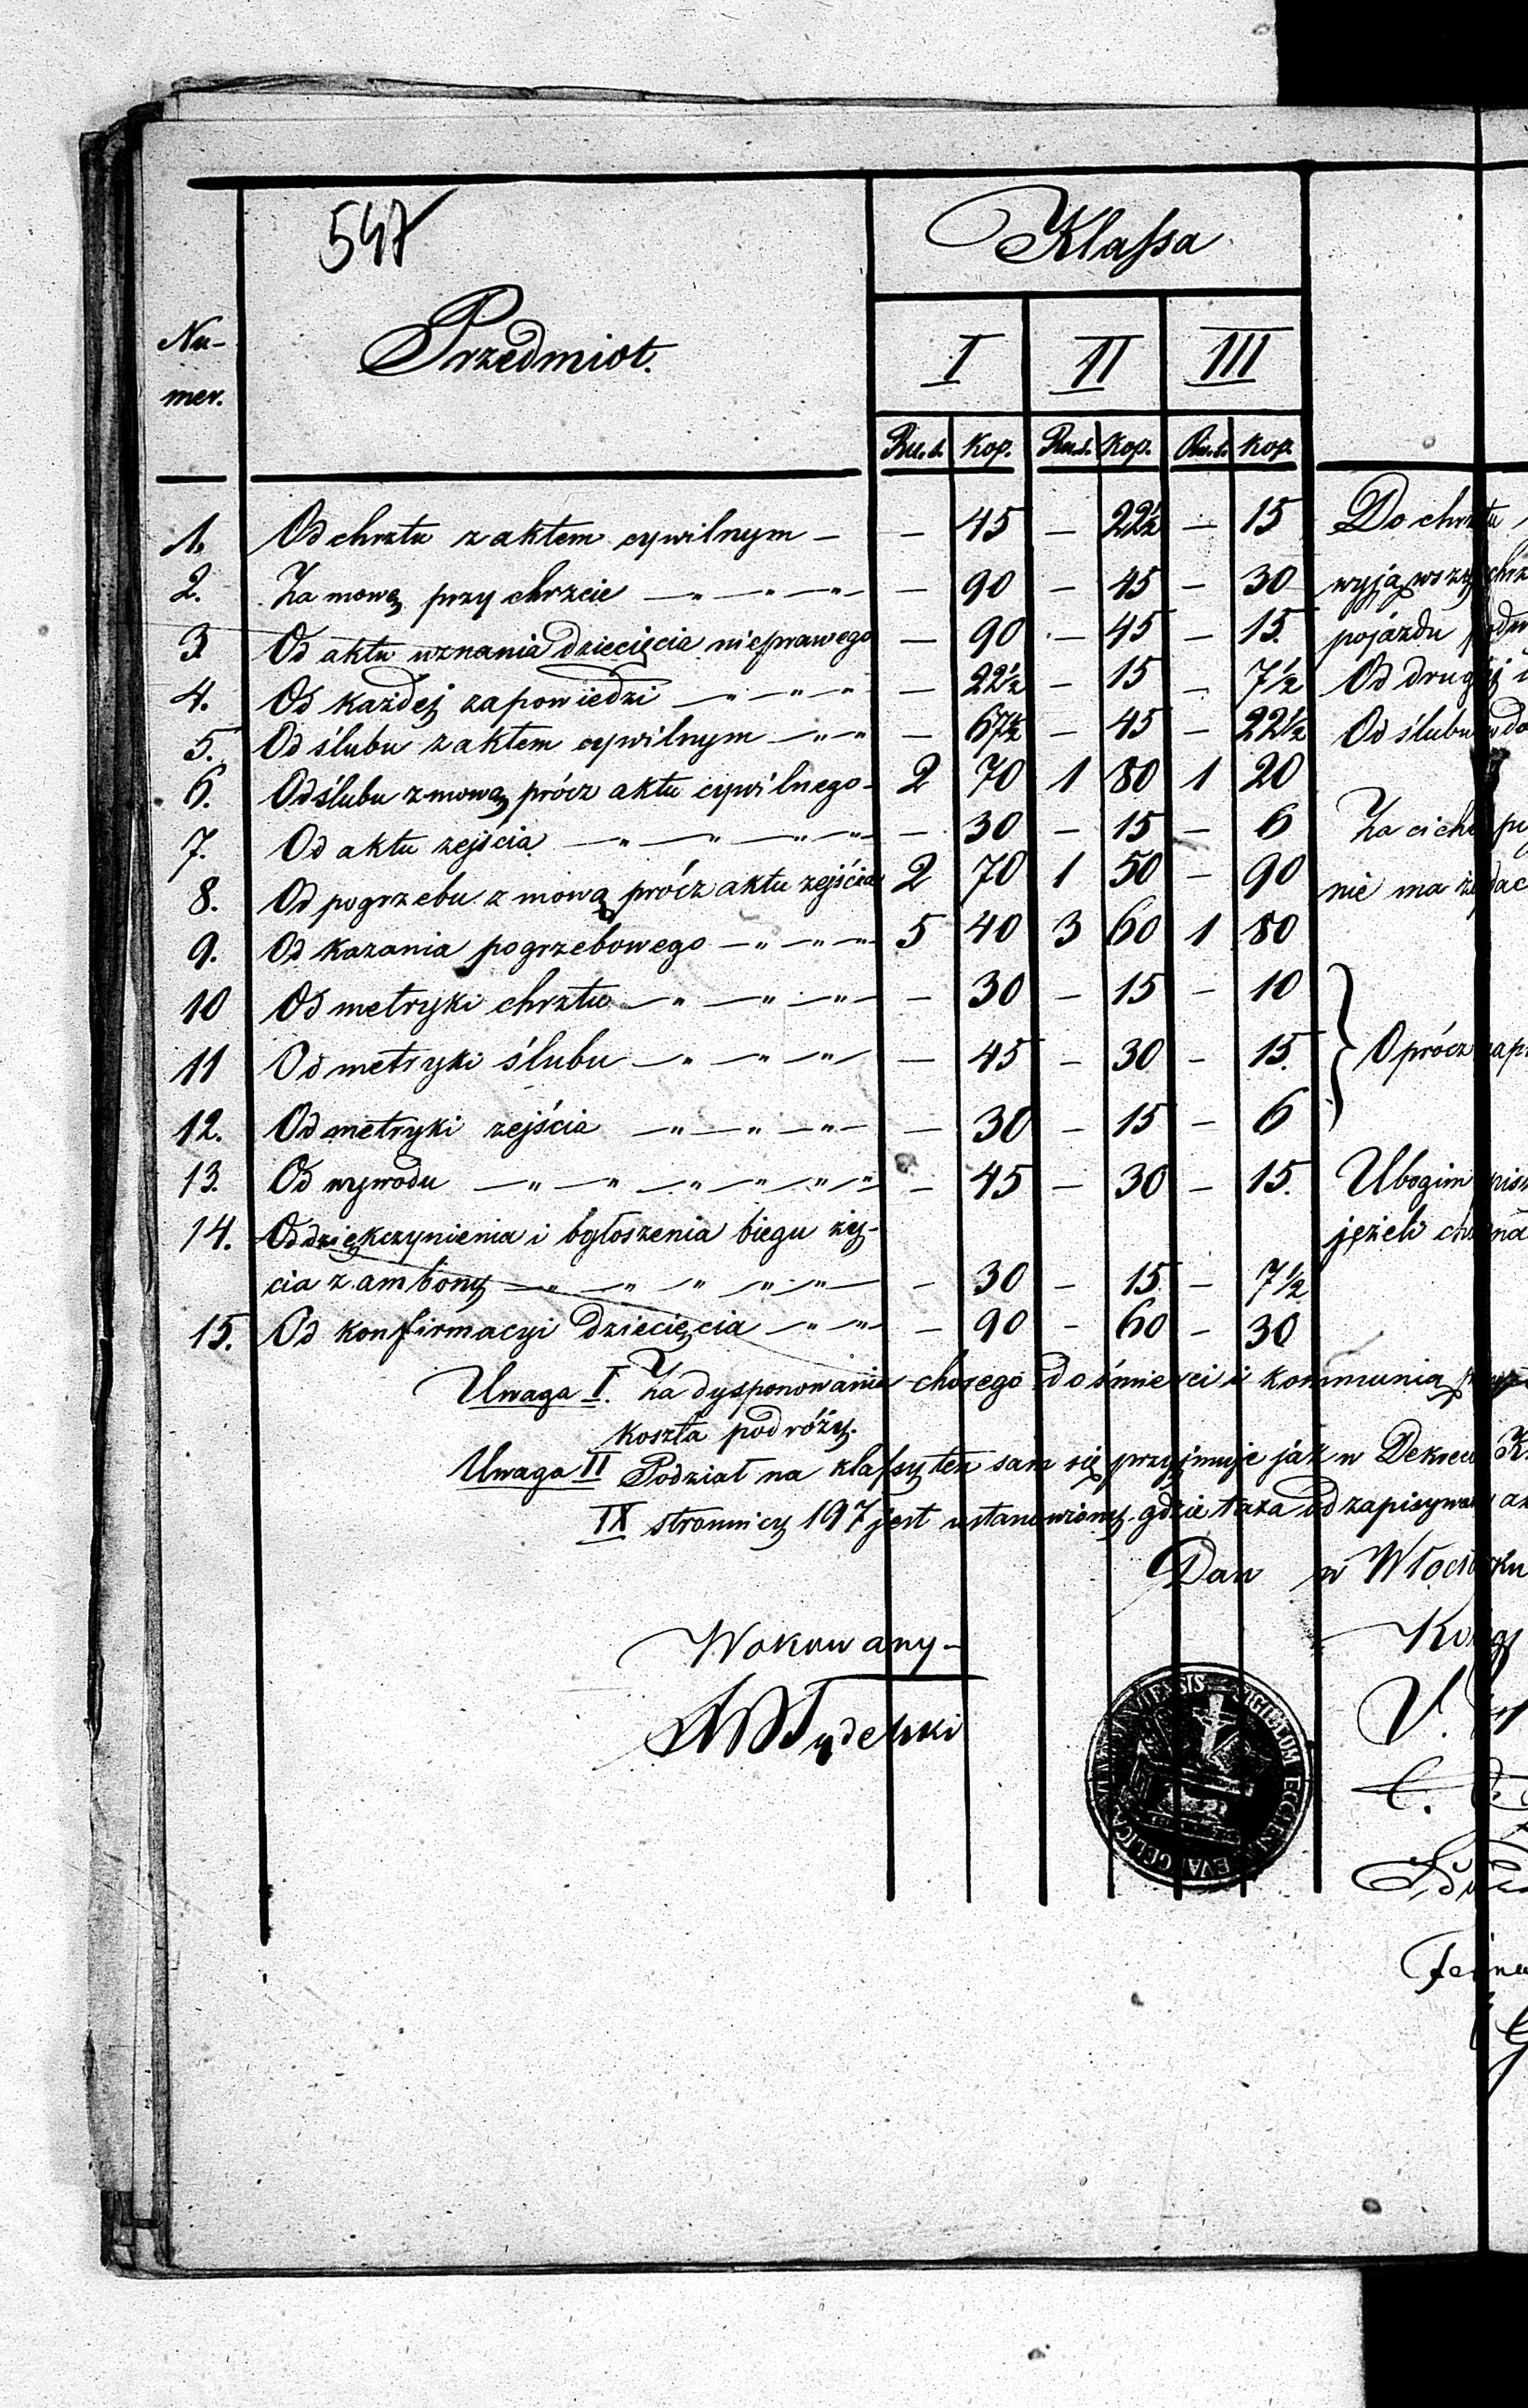 547
Klassa
Nu-
mer.
Przedmiot.
I II III
Ru.s. Kop. Ru.s. Kop. Ru.s. Kop.
1. Od chrztu z aktem cywilnym – – 45 – 22½ – 15 Do chrztu
2. Za mową przy chrzcie – " – " – " – – 90 – 45 – 30 wyjąwszy chrz
3. Od aktu uznania dziecięcia nieprawego – 90 – 45 – 15. pojazdu
4. Od każdej zapowiedzi – " – " – " – 22½ – 15 – 7½ Od drugiej i
5. Od ślubu z aktem cywilnym – " – " – 67½ – 45 – 22½ Od ślubu
6. Od ślubu z mową prócz aktu cywilnego – 2 70 1 80 1 20
7. Od aktu zejścia – " – " – " – " – – 30 – 15 – 6 Za cichy
8. Od pogrzebu z mową prócz aktu zejścia 2 70 1 50 – 90 nie ma żądać
9. Od kazania pogrzebowego – " – " – " 5 40 3 60 1 80
10 Od metryki chrztu – " – " – " – – 30 – 15 – 10
11 Od metryki ślubu – " – " – " – – 45 – 30 – 15. } Oprócz
12. Od metryki zejścia – " – " – " – – 30 – 15 – 6
13. Od wywodu – " – " – " – " – " – " – 45 – 30 – 15. Ubogim
14. Od dziękczynienia i ogłoszenia biegu ży-
jeżeli
cia z ambony – " – " – " – " – " – – 30 – 15 – 7½
15. Od konfirmacyi dziecięcia – " – " – 90 – 60 – 30
Uwaga I. Za dysponowanie chorego do śmierci i kommunią
koszta podróży.
Uwaga II Podział na klassy ten sam się przyjmuje jak w Dekrecie K.
IX stronnicy 197 jest ustanowiony gdzie taxa od zapisywania
Dan w Włocławku
Wokowany –
VIGIELOM ECCLESI EVANGELICA